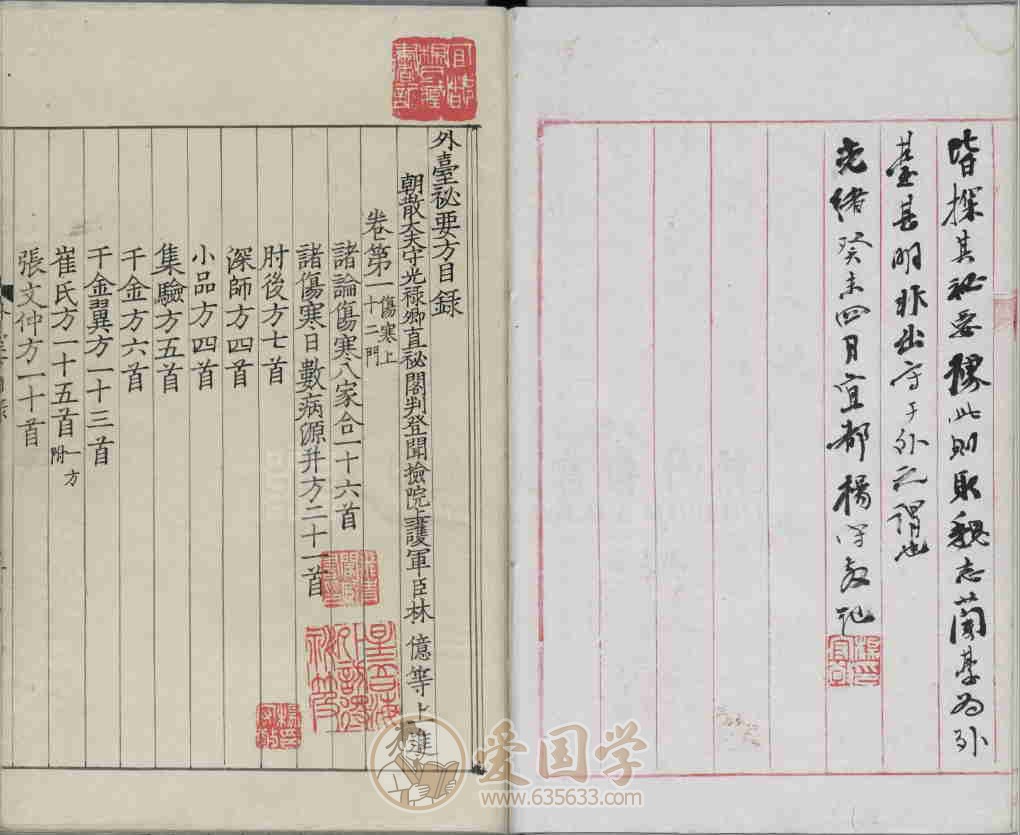 皆探其祕要據此則取魏志蘭臺為外
臺甚明非出守于外之謂也
光緒癸未四月宜都楊守敬記
外臺祕要方目錄
朝散大夫守光祿卿直祕閣判登聞撿院上護軍臣林億等上進
卷第一傷寒上一十二門
諸論傷寒八家合一十六首
諸傷寒日數病源并方二十一首
肘後方七首
深師方四首
小品方四首
集驗方五首
千金方六首
千金翼方一十三首
崔氏方一十五首一方附
張文仲方一十首
宜都楊氏藏書記
星吾海外訪得祕笈
爱国学
www.635633.com